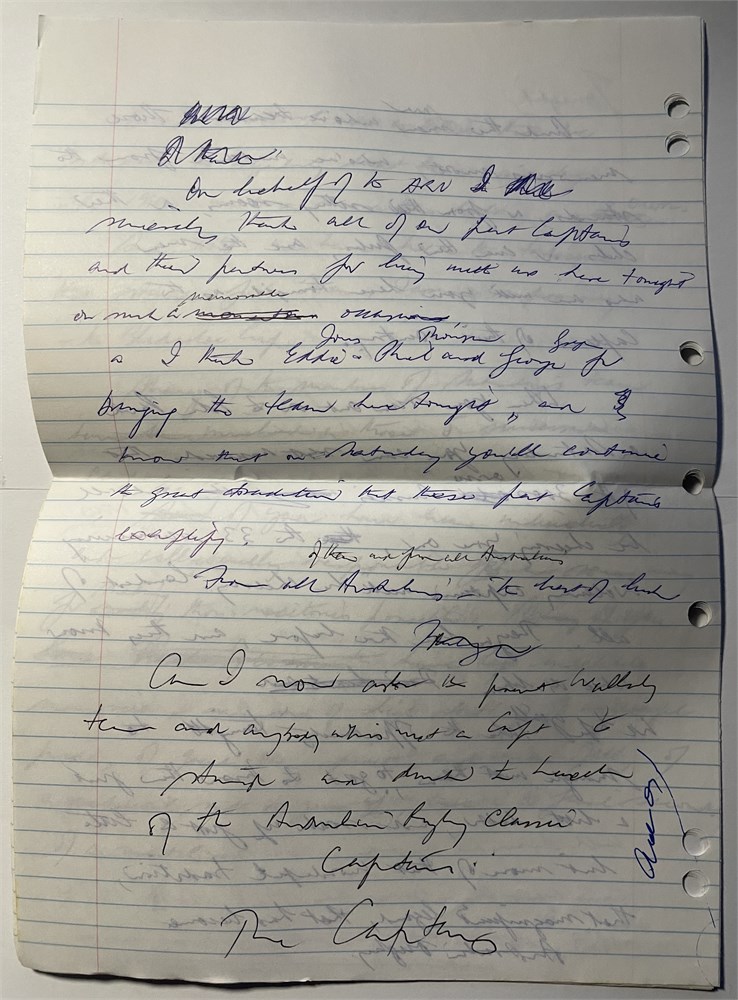 On behalf of to ARU I
sincerely thank all of our past Captains
and their partners for being with us here tonight
memorable
on such a occasion
Jones George
& I thank Eddie & Phil and George for
bringing the team here tonight, and
know that on Saturday you'll continue
the great tradition that these past Captains
exemplify.
of them and from all Australians
From all Australians – the best of luck
Can I now ask the present Wallaby
team and anybody who is not a Capt to
stand and drink the health
of the Australian Rugby Classic
Captains.
The Captains